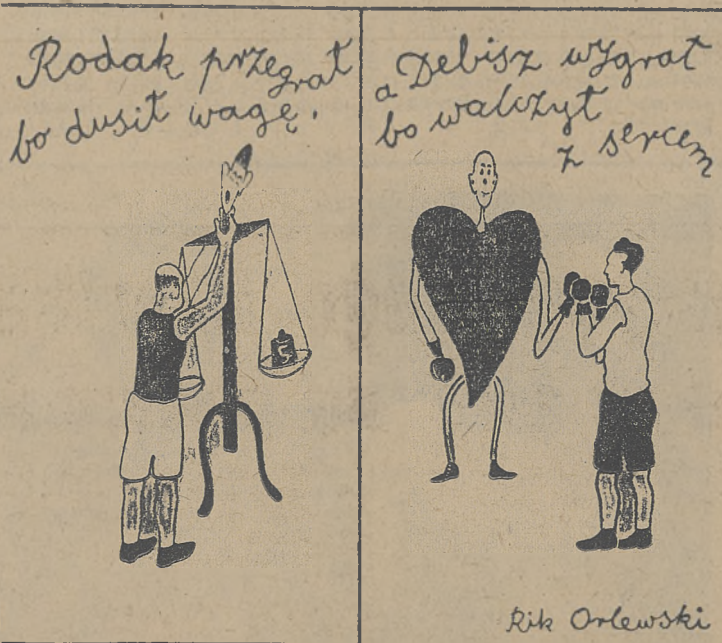 Rodak przegrał
bo dusił wagę.
a Debisz wygrał
bo walczył
z sercem
5
Rik Orlewski